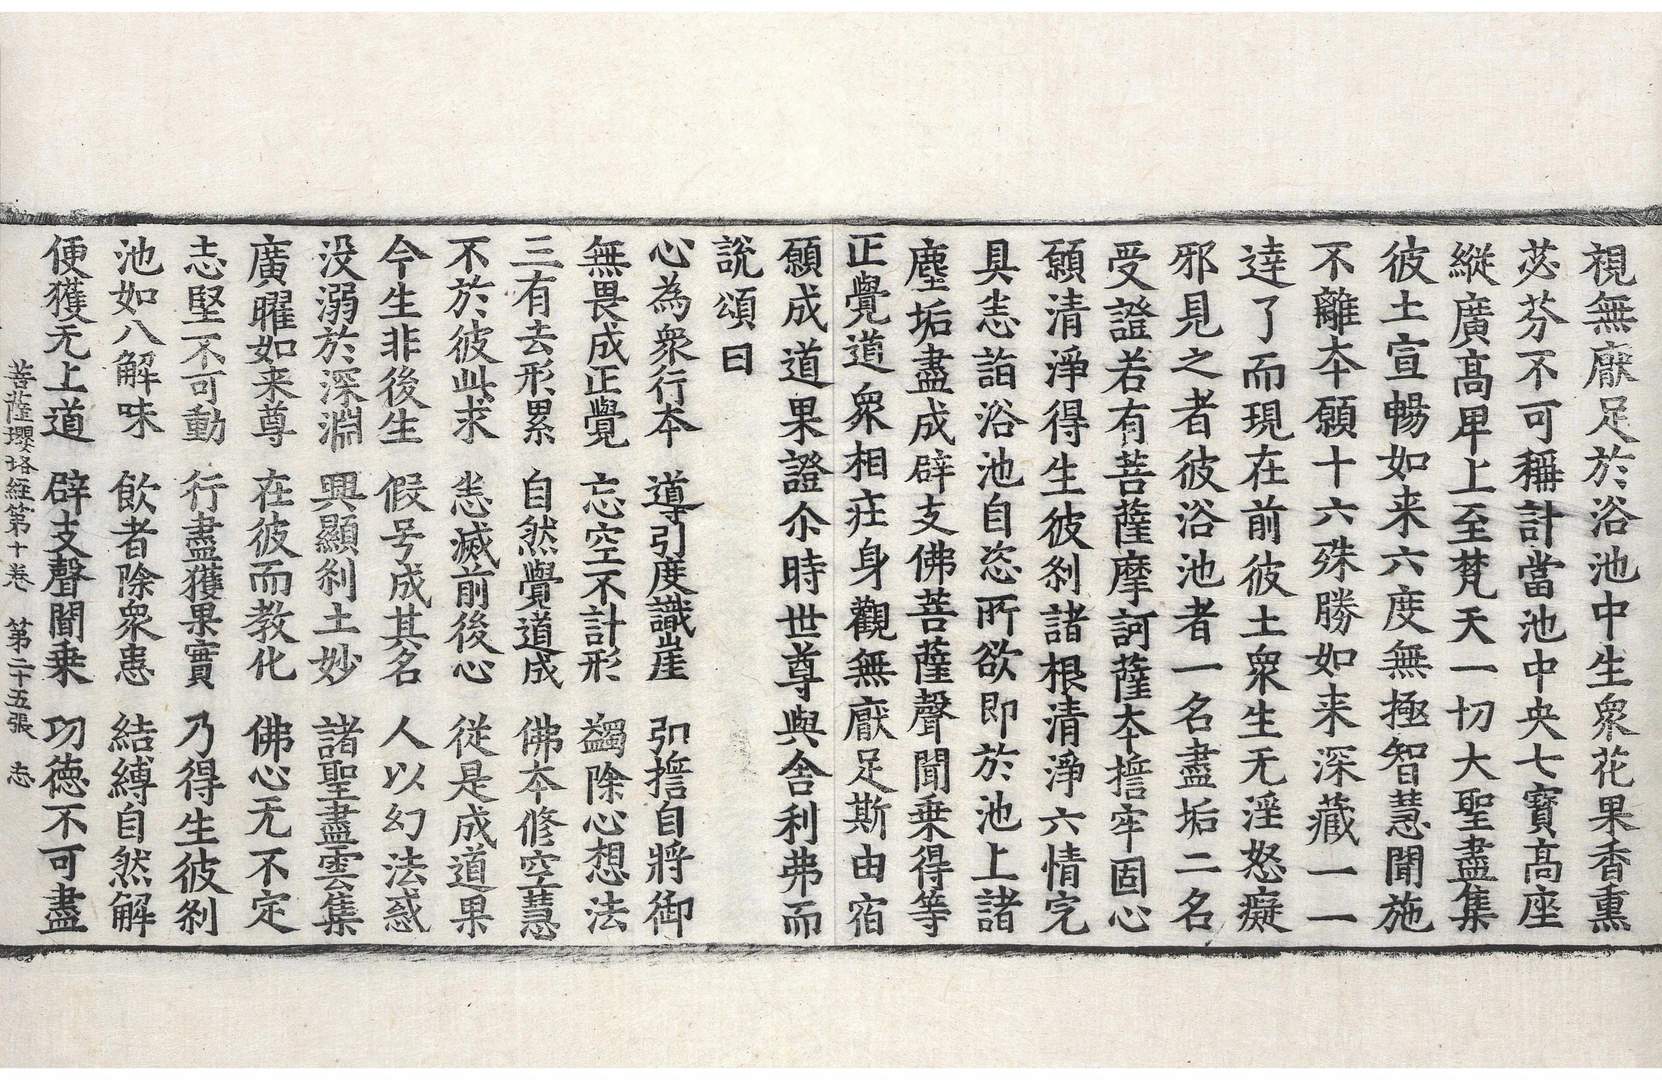 視無厭足於浴池中生衆花果香熏
苾芬不可稱計當池中央七寶高座
縱廣高卑上至梵天一切大聖盡集
彼土宣暢如来六度無極智慧聞施
不離本願十六殊勝如来深藏一一
達了而現在前彼土衆生无淫怒癡
邪見之者彼浴池者一名盡垢二名
受證若有菩薩摩訶薩本擔牢固心
願清淨得生彼刹諸根清淨六情完
具恙詣浴池自恣所欲即於池上諸
塵垢盡成辟支佛菩薩聲聞乗得等
正覺道衆相莊身觀無厭足斯由宿
願成道果證尒時世尊與舍利弗而
說頌曰
心為衆行本　導引度識崖　引擔自將御
無畏成正覺　忘空不計形　蠲除心想法
三有去形累　自然覺道成　佛本修空慧
不於彼此求　恙滅前後心　從是成道果
今生非後生　假号成其名　人以幻法惑
没溺於深淵　興顯刹土妙　諸聖盡雲集
廣曜如来尊　在彼而教化　佛心无不定
志堅不可動　行盡獲果實　乃得生彼刹
池如八解味　飲者除衆患　結縛自然解
便獲无上道　辟支聲聞乗　功德不可盡
菩薩瓔珞経第十卷　第二十五張　志